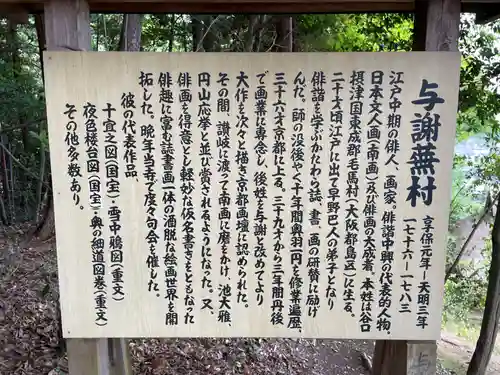 与謝蕪村
享保元年ー天明三年
一七七六ー一七八三
江戸中期の俳人、画家。俳諧中興の代表的人物。
日本文人画(南画)及び俳画の大成者。本姓は谷口
摂津国東成郡毛馬村(大阪都島区)に生る。
二十才頃江戸に出て早野巴人の弟子となり
俳諧を学ぶかたわら詩、書、画の研賛に励げ
んだ。師の没後やく十年間奥羽一円を修業遍歴、
三十六才京都に上る。三十九才から三年間丹後
で画業に専念し、後姓を与謝と改めてより
大作を次々と描き京都画壇に認められた。
その間、讃岐に渡って南画に磨をかけ、池大雅、
円山応挙と並び賞されるようになった。又、
俳画を得意とし軽妙な仮名書きをともなった
俳趣に富む誌書画一体の洒脱な絵画世界を開
拓した。晩年当寺で度々句会を催した。
彼の代表作品、
十宜之図(国宝)・雪中鴉図(重文)
夜色楼台図(国宝)・奥の細道図巻(重文)
その他多数あり。